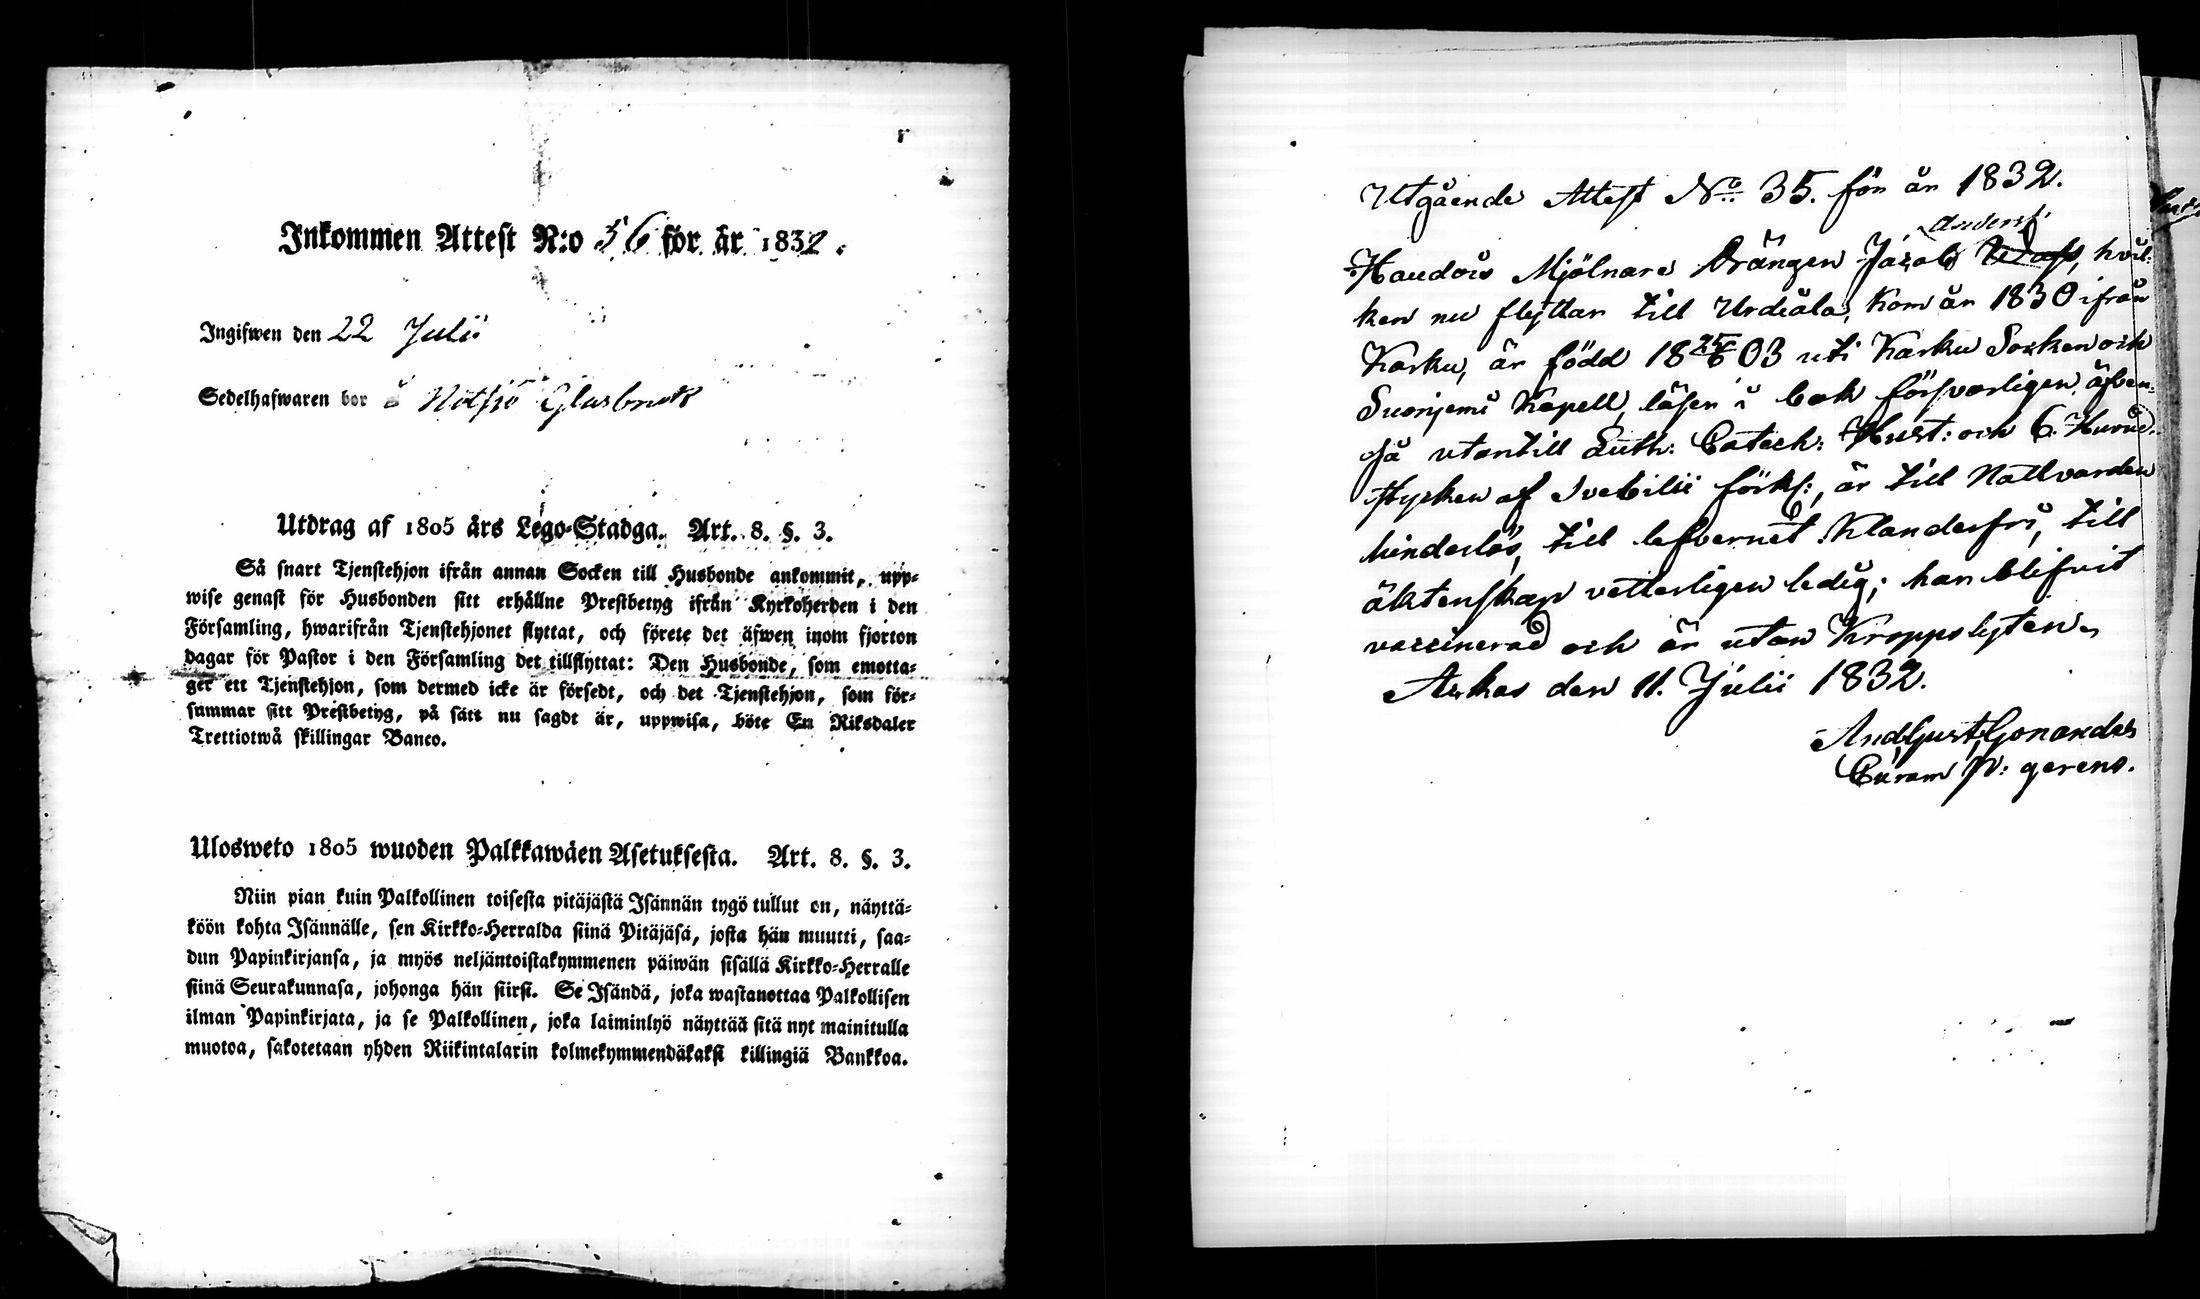 Inkommen Attest N:o 56 för år 1832.
Ingifwen den 22 Julii
Sedelhafwaren bor å Nötsjö Glasbruk
Utdrag af 1805 års Lego-Stadga. Art. 8. §. 3.
Så snart Tjenstehjon ifrån annan Socken till Husbonde ankommit, upp-
wise genast för Husbonden sitt erhållne Prestbetyg ifrån Kyrkoherden i den
Församling, hwarifrån Tjenstehjonet flyttat, och förete det äfwen inom fjorton
dagar för Pastor i den Församling det tillflyttat: Den Husbonde, som emotta-
ger ett Tjenstehjon, som dermed icke är försedt, och det Tjenstehjon, som för-
summar sitt Prestbetyg, på sätt nu sagdt är, uppwisa, böte En Riksdaler
Trettiotwå skillingar Banco.
Ulosweto 1805 wuoden Palkkawäen Asetuksesta. Art. 8. §. 3.
Niin pian kuin Palkollinen toisesta pitäjästä Isännän tygö tullut on, näyttä-
köön kohta Isännälle, sen Kirkko-Herralda siinä Pitäjäsä, josta hän muutti, saa-
dun Papinkirjansa, ja myös neljäntoistakymmenen päiwän sisällä Kirkko-Herralle
siinä Seurakunnasa, johonga hän siirsi. Se Isändä, joka wastanottaa Palkollisen
ilman Papinkirjata, ja se Palkollinen, joka laiminlyö näyttää sitä nyt mainitulla
muotoa, sakotetaan yhden Riikintalarin kolmekymmendäkaksi killingiä Bankkoa.
Utgående Attest No. 35. för år 1832.
Anderss.
Haudois Mjölnare Drängen Jacob, hvil-
ken nu flyttar till Urdiala, kom år 1830 ifrån
Karku, är född 18 25/6 03 uti Karku Socken och
Suoniemi Kapell, läser i bok försvarligen, äfven-
så utantill Luth: Catech: Hust: och 6. Hufvud-
stycken af Svebilii förkl:, är till Nattvarden
hinderlös, till lefvernet Klanderfri, till
äktenskap vetterligen ledig; han blifvit
vaccinerad och är utan Kroppslyten.
den 11. Julii 1832.
And. Gust.
Curam P: gerens.